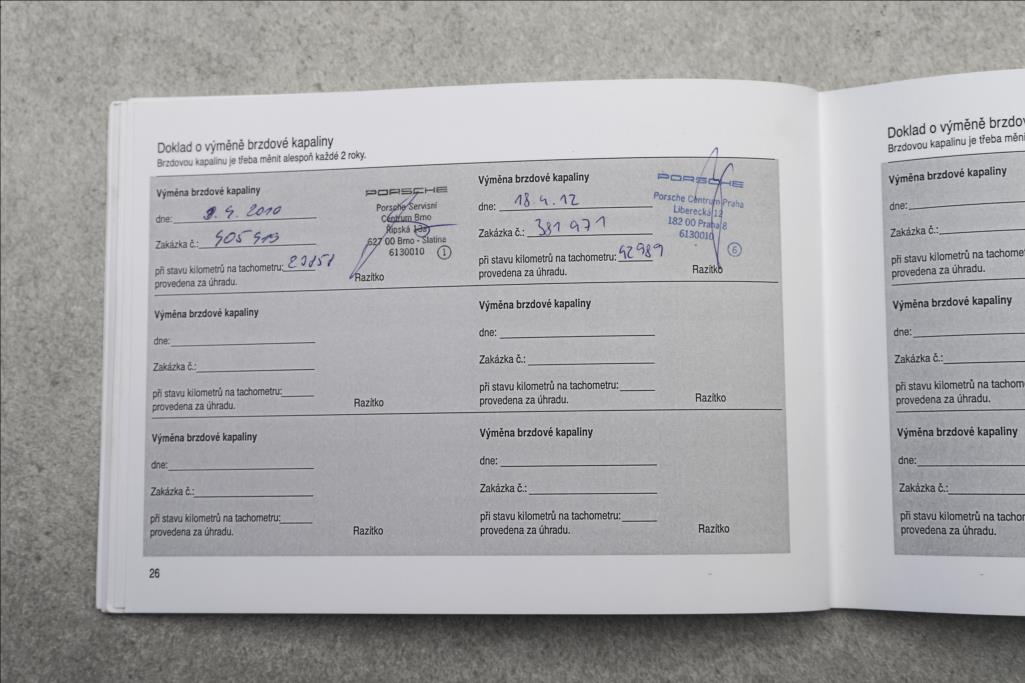 Doklad o výměně brzdové kapaliny
Brzdovou kapalinu je třeba měnit alespoň každé 2 roky.
Výměna brzdové kapaliny
dne: 9. 4. 2010
Zakázka č.:
při stavu kilometrů na tachometru:
provedena za úhradu.
PORSCHE
Porsche Servisní
Centrum Brno
Řípská
627 00 Brno - Slatina
6130010 1
Razítko
Výměna brzdové kapaliny
dne: 18 4. 12
Zakázka č.: 381 971
při stavu kilometrů na tachometru: 42989
provedena za úhradu.
PORSCHE
Porsche Centrum Praha
Liberecká 12
182 00 Praha 8
6130010
6
Razítko
Výměna brzdové kapaliny
dne:
Zakázka č.:
při stavu kilometrů na tachometru:
provedena za úhradu.
Razítko
Výměna brzdové kapaliny
dne:
Zakázka č.:
při stavu kilometrů na tachometru:
provedena za úhradu.
Razítko
Výměna brzdové kapaliny
dne:
Zakázka č.:
při stavu kilometrů na tachometru:
provedena za úhradu.
Razítko
Výměna brzdové kapaliny
dne:
Zakázka č.:
při stavu kilometrů na tachometru:
provedena za úhradu.
Razítko
26
Doklad o výměně brzdov
Brzdovou kapalinu je třeba měni
Výměna brzdové kapaliny
dne:
Zakázka č.:
při stavu kilometrů na tachome
provedena za úhradu.
Výměna brzdové kapaliny
dne:
Zakázka č.:
při stavu kilometrů na tachom
provedena za úhradu.
Výměna brzdové kapaliny
dne:
Zakázka č.:
při stavu kilometrů na tachor
provedena za úhradu.